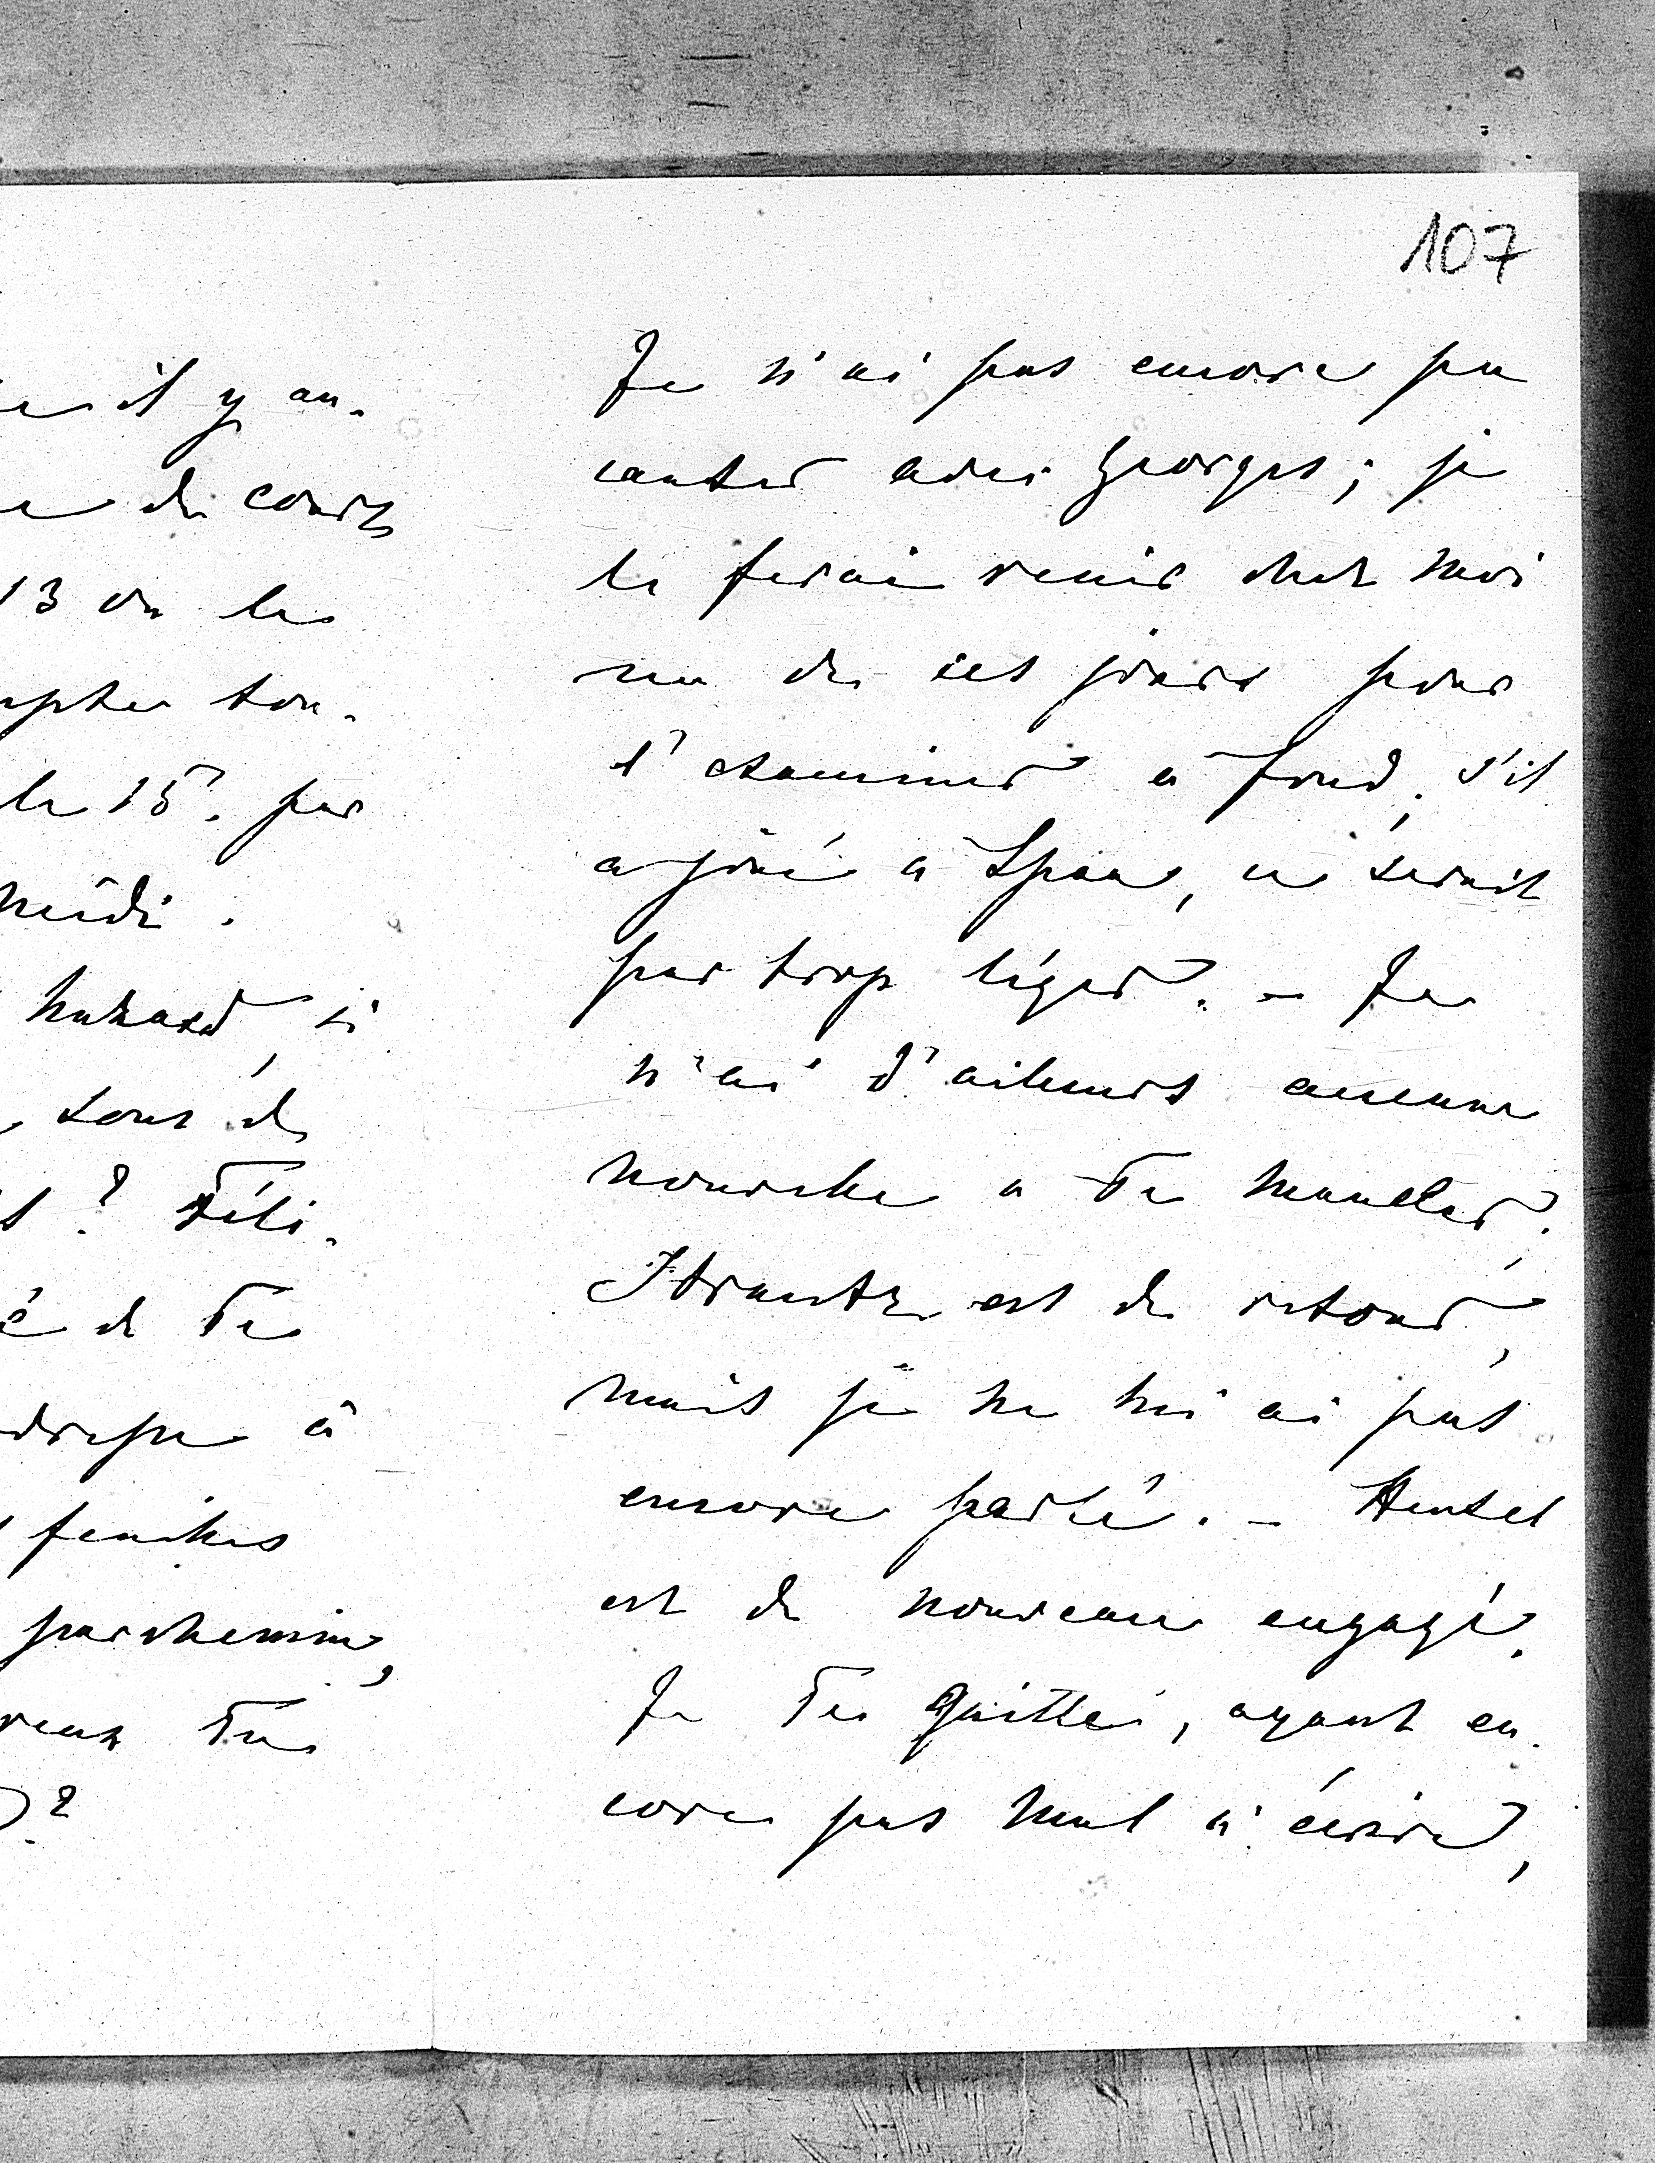 il y au-
de cours
13 ou le
ton-
le 15. par
midi.
hasard, si
sous de
? Féli-
é de Te
à
feuilles
parchemin,
veux Tu
?
107
Je n'ai pas encore pu
causer avec Georges; je
le ferai venir chez moi
un de ces jours pour
l'examiner à fond; s'il
a joué à Spaa, ce serait
par trop léger. – Je
n'ai d'ailleurs aucune
nouvelle a Te mander;
est de retour,
mais je ne lui ai pas
encore parlé. – Hentsel
est de nouveau engagé.
Je Te Quitte, ayant en-
core pas mal à écrire,